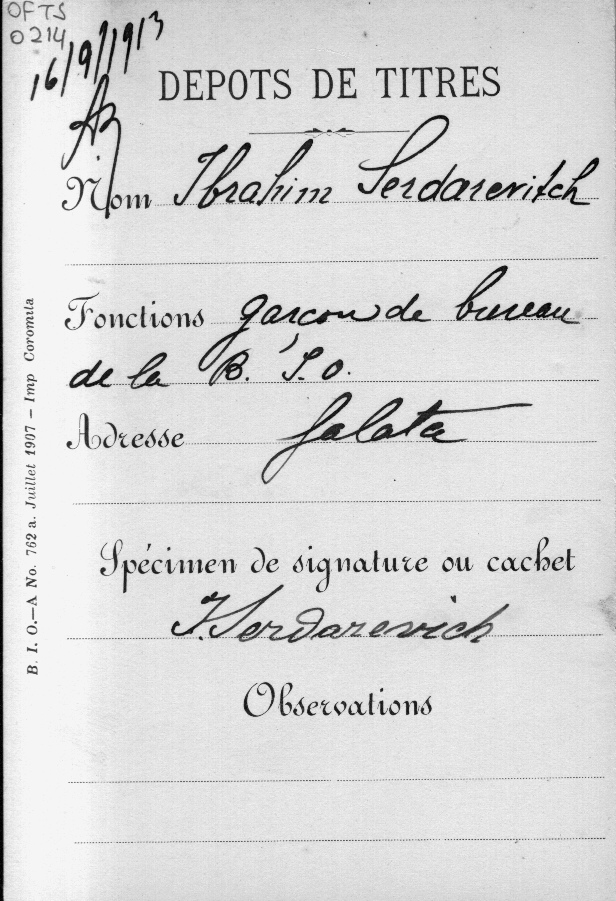 OFTS
0214
16/9/1913
DEPOTS DE TITRES
Nom Ibrahim Serdarevitch
Fonctions garçon de bureau
de la B. I. O.
Adresse Galata
Spécimen de signature ou cachet
I. Serdarevich
Observations
B. I. O.—A No. 762 a. Juillet 1907 — Imp Coromila